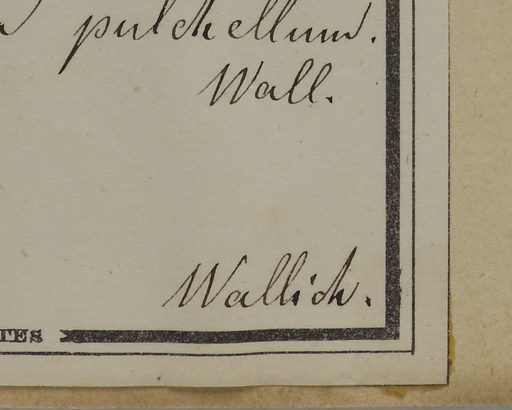 pulchellum.
Wall.
Wallich.